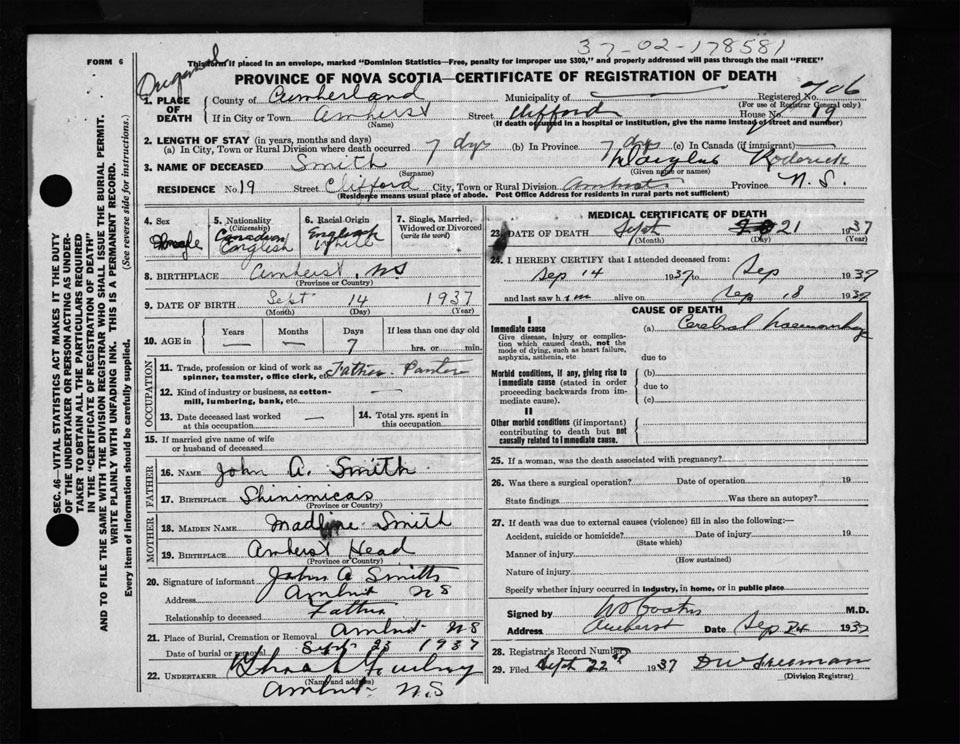 37-02-178581
FORM 6
This form if placed in an envelope, marked "Dominion Statistics—Free, penalty for improper use $300," and properly addressed will pass through the mail "FREE"
Original
PROVINCE OF NOVA SCOTIA—CERTIFICATE OF REGISTRATION OF DEATH
1. PLACE OF DEATH
County of Cumberland Municipality of Registered No. 706
(For use of Registrar General only)
If in City or Town Amherst Street Clifford House No. 19
(Name) (If death occurred in a hospital or institution, give the name instead of street and number)
2. LENGTH OF STAY (in years, months and days)
(a) In City, Town or Rural Division where death occurred 7 dys (b) In Province 7 dys (c) In Canada (if immigrant)
3. NAME OF DECEASED Smith Douglas Roderick
(Surname) (Given name or names)
RESIDENCE No. 19 Street Clifford City, Town or Rural Division Amherst Province N.S.
(Residence means usual place of abode. Post Office Address for residents in rural parts not sufficient)
4. Sex
5. Nationality (Citizenship) Canadian English
6. Racial Origin English White
7. Single, Married, Widowed or Divorced (write the word)
8. BIRTHPLACE Amherst, NS
(Province or Country)
9. DATE OF BIRTH Sept 14 1937
(Month) (Day) (Year)
10. AGE in Years Months Days If less than one day old
— — 7 hrs. or min.
OCCUPATION
11. Trade, profession or kind of work as spinner, teamster, office clerk, etc. Father
12. Kind of industry or business, as cotton-mill, lumbering, bank, etc. —
13. Date deceased last worked at this occupation —
14. Total yrs. spent in this occupation
15. If married give name of wife or husband of deceased
FATHER
16. NAME John A. Smith
17. BIRTHPLACE Shinimicas
(Province or Country)
MOTHER
18. MAIDEN NAME Madline Smith
19. BIRTHPLACE Amherst Head
(Province or Country)
20. Signature of informant John A Smith
Address Amherst NS
Relationship to deceased Father
21. Place of Burial, Cremation or Removal Amherst NS
Date of burial or removal Sept 23 1937
22. UNDERTAKER
(Name and address)
Amherst N.S
MEDICAL CERTIFICATE OF DEATH
23. DATE OF DEATH Sept 21 1937
(Month) (Day) (Year)
24. I HEREBY CERTIFY that I attended deceased from:
Sep 14 1937 to Sep 1937
and last saw him alive on Sep 18 1937
CAUSE OF DEATH
I
Immediate cause
Give disease, injury or complication which caused death, not the mode of dying, such as heart failure, asphyxia, asthenia, etc
(a) Cerebral haemorrhage
due to
Morbid conditions, if any, giving rise to immediate cause (stated in order proceeding backwards from immediate cause).
(b)
due to
(c)
II
Other morbid conditions (if important) contributing to death but not causally related to immediate cause.
25. If a woman, was the death associated with pregnancy?
26. Was there a surgical operation? Date of operation 19
State findings Was there an autopsy?
27. If death was due to external causes (violence) fill in also the following:—
Accident, suicide or homicide? Date of injury 19
(State which)
Manner of injury
(How sustained)
Nature of injury
Specify whether injury occurred in industry, in home, or in public place
Signed by M.D.
Address Amherst Date Sep 24 1937
28. Registrar's Record Number
29. Filed Sept 22 1937
(Division Registrar)
SEC. 46—VITAL STATISTICS ACT MAKES IT THE DUTY
OF THE UNDERTAKER OR PERSON ACTING AS UNDER-
TAKER TO OBTAIN ALL THE PARTICULARS REQUIRED
IN THE "CERTIFICATE OF REGISTRATION OF DEATH"
AND TO FILE THE SAME WITH THE DIVISION REGISTRAR WHO SHALL ISSUE THE BURIAL PERMIT.
WRITE PLAINLY WITH UNFADING INK. THIS IS A PERMANENT RECORD.
Every item of information should be carefully supplied. (See reverse side for instructions.)